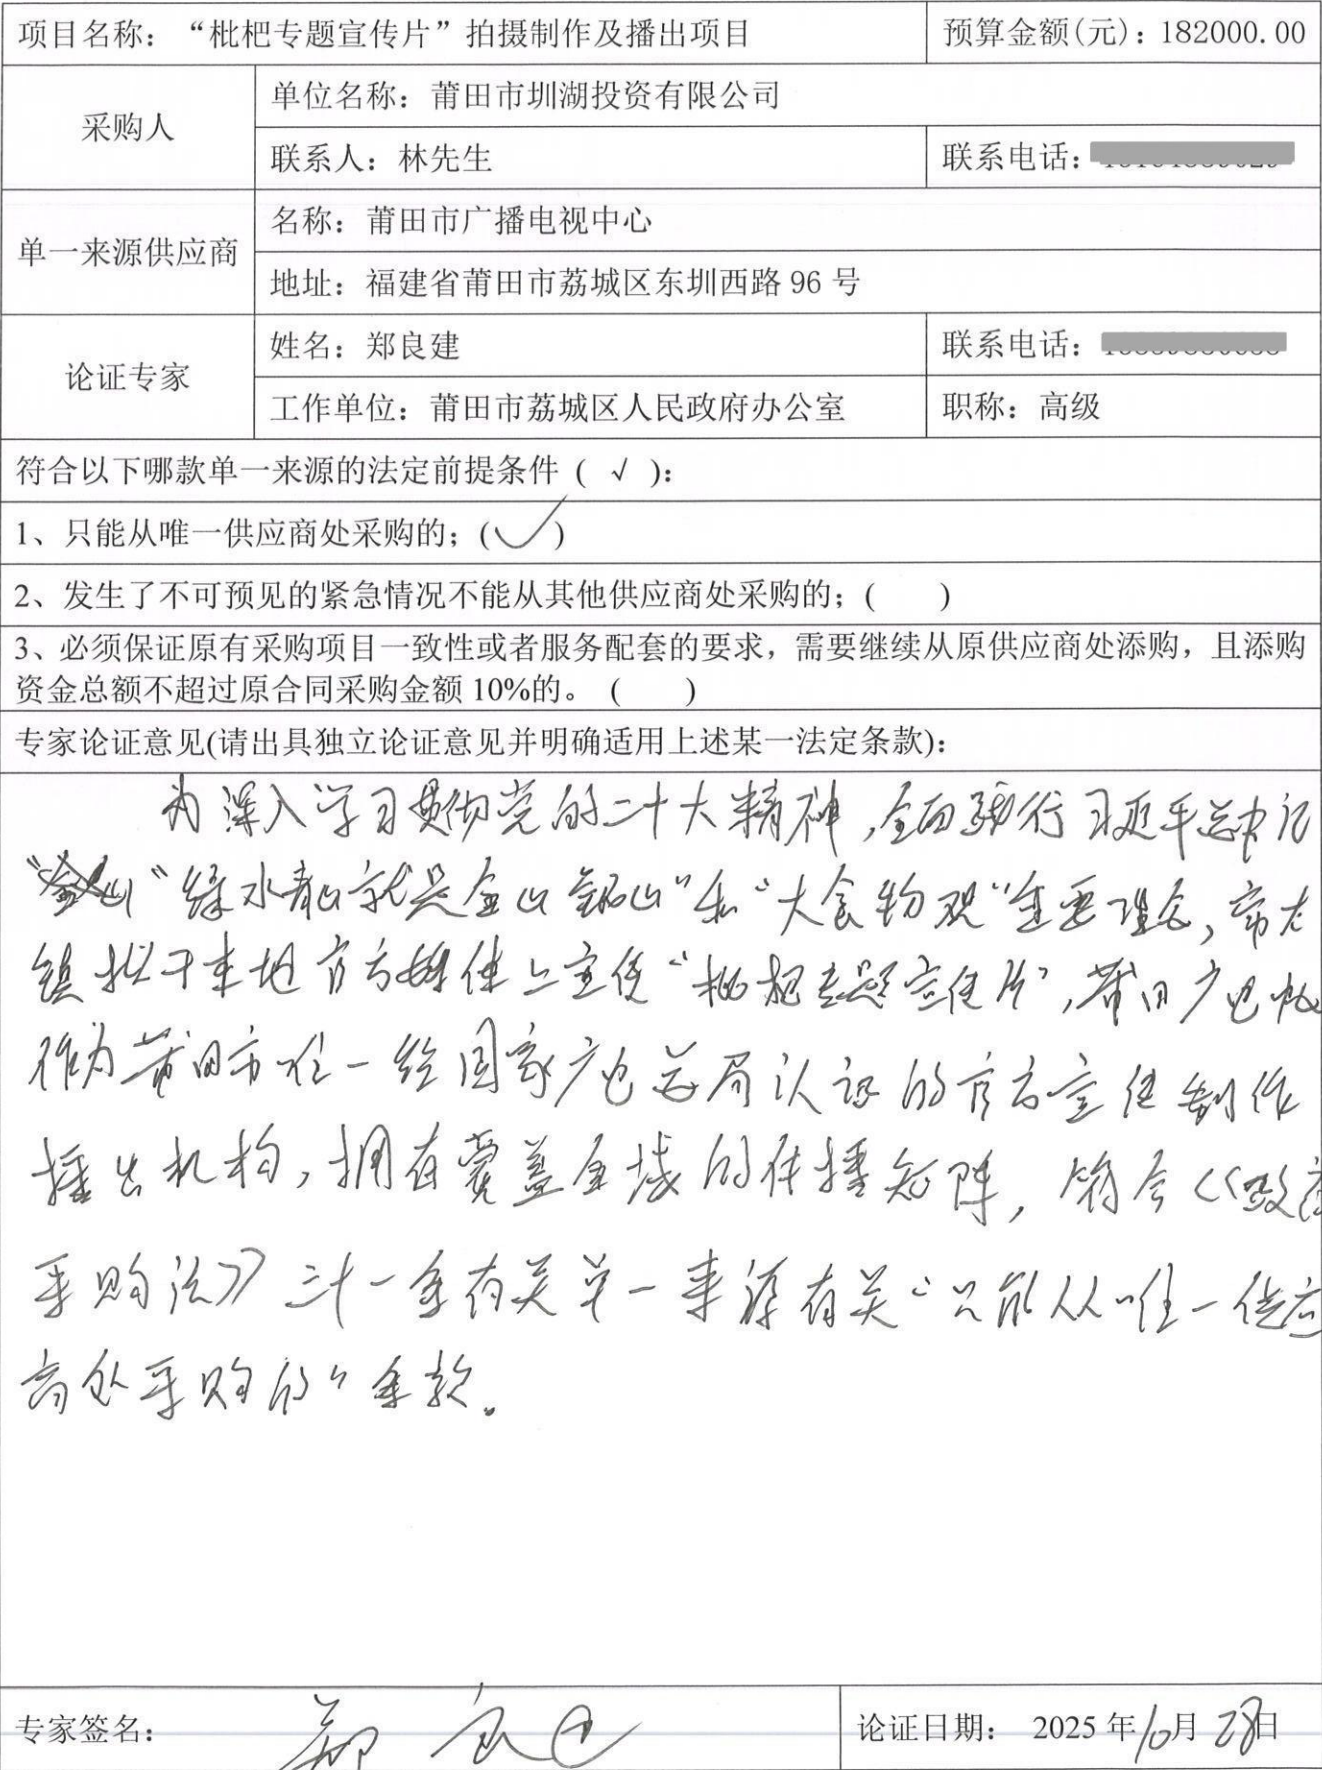 项目名称：“枇杷专题宣传片”拍摄制作及播出项目 预算金额(元)：182000.00
采购人
单位名称：莆田市圳湖投资有限公司
联系人：林先生 联系电话：
单一来源供应商
名称：莆田市广播电视中心
地址：福建省莆田市荔城区东圳西路 96 号
论证专家
姓名：郑良建 联系电话：
工作单位：莆田市荔城区人民政府办公室 职称：高级
符合以下哪款单一来源的法定前提条件（ √ ）：
1、只能从唯一供应商处采购的；(✓)
2、发生了不可预见的紧急情况不能从其他供应商处采购的；( )
3、必须保证原有采购项目一致性或者服务配套的要求，需要继续从原供应商处添购，且添购
资金总额不超过原合同采购金额 10%的。 ( )
专家论证意见(请出具独立论证意见并明确适用上述某一法定条款)：
为深入学习贯彻党的二十大精神，全面践行习近平总书记
“绿水青山就是金山银山”和“大食物观”重要理念，常太
镇拟于本地官方媒体上宣传“枇杷专题宣传片”，莆田广电
作为莆田市唯一经国家广电总局认证的官方宣传制作
播出机构，拥有覆盖全域的传播矩阵，符合《政府
采购法》三十一条有关单一来源有关“只能从唯一供应
商处采购的”条款。
专家签名： 郑良建 论证日期： 2025 年10月28日